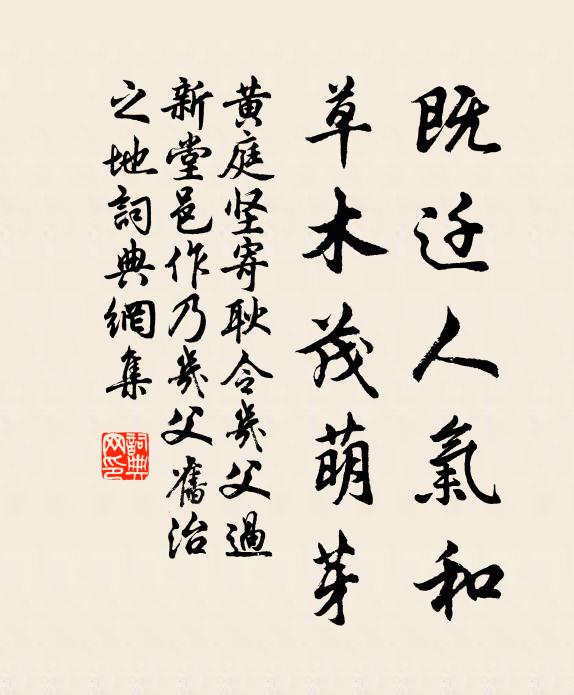 既迁人氣和
草木茂萌芽
黄庭坚寄耿令幾父過
新堂邑作乃幾父舊治
之地詞典網集
詞典网印